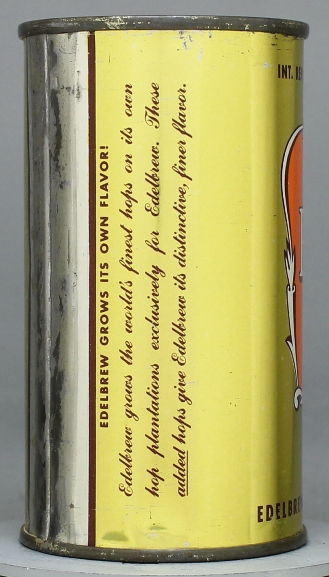 EDELBREW GROWS ITS OWN FLAVOR!
Edelbrew grows the world's finest hops on its own
hop plantations exclusively for Edelbrew. These
added hops give Edelbrew its distinctive, finer flavor.
INT.
EDELBRE